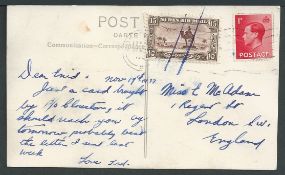 POST
Communication-Correspondance
SUDAN AIR MAIL
15 15
1D
POSTAGE
Dear Enid: Nov 19th 1937
Just a card brought
by
it
should reach you by
tomorrow, probably beat
the letter I sent last
week
Love Ted.
Miss E McAdam
1 Regent St
London S.W.
England